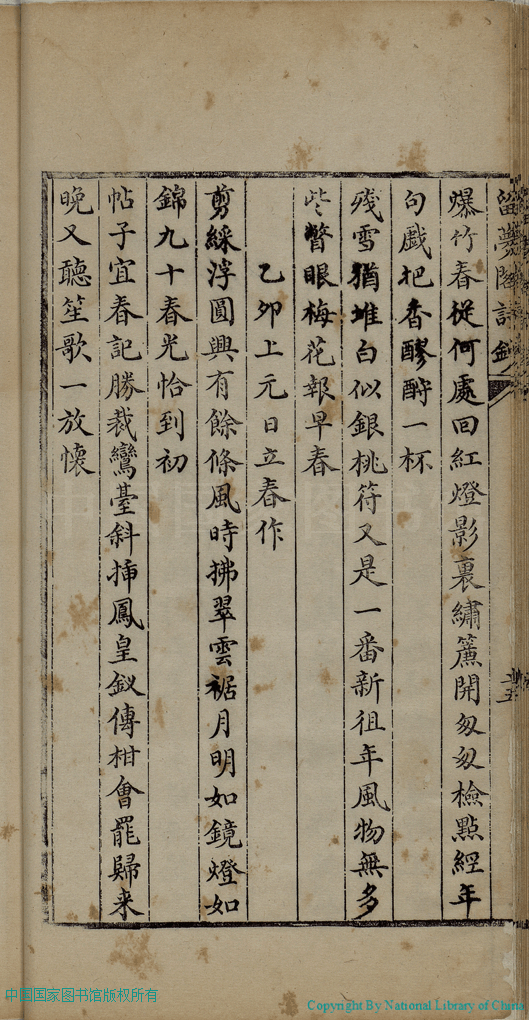 留夢閣詩鈔
爆竹春從何處回紅燈影裏繡簾開匆匆檢點經年
句戲把香醪酹一杯
殘雪猶堆白似銀桃符又是一番新徂年風物無多
些瞥眼梅花報早春
乙卯上元日立春作
剪綵浮圓興有餘條風時拂翠雲裾月明如鏡燈如
錦九十春光恰到初
帖子宜春記勝裁鸞臺斜揷鳳皇釵傳柑會罷歸来
晚又聽笙歌一放懷
中国国家图书馆版权所有
Copyright By National Library of China